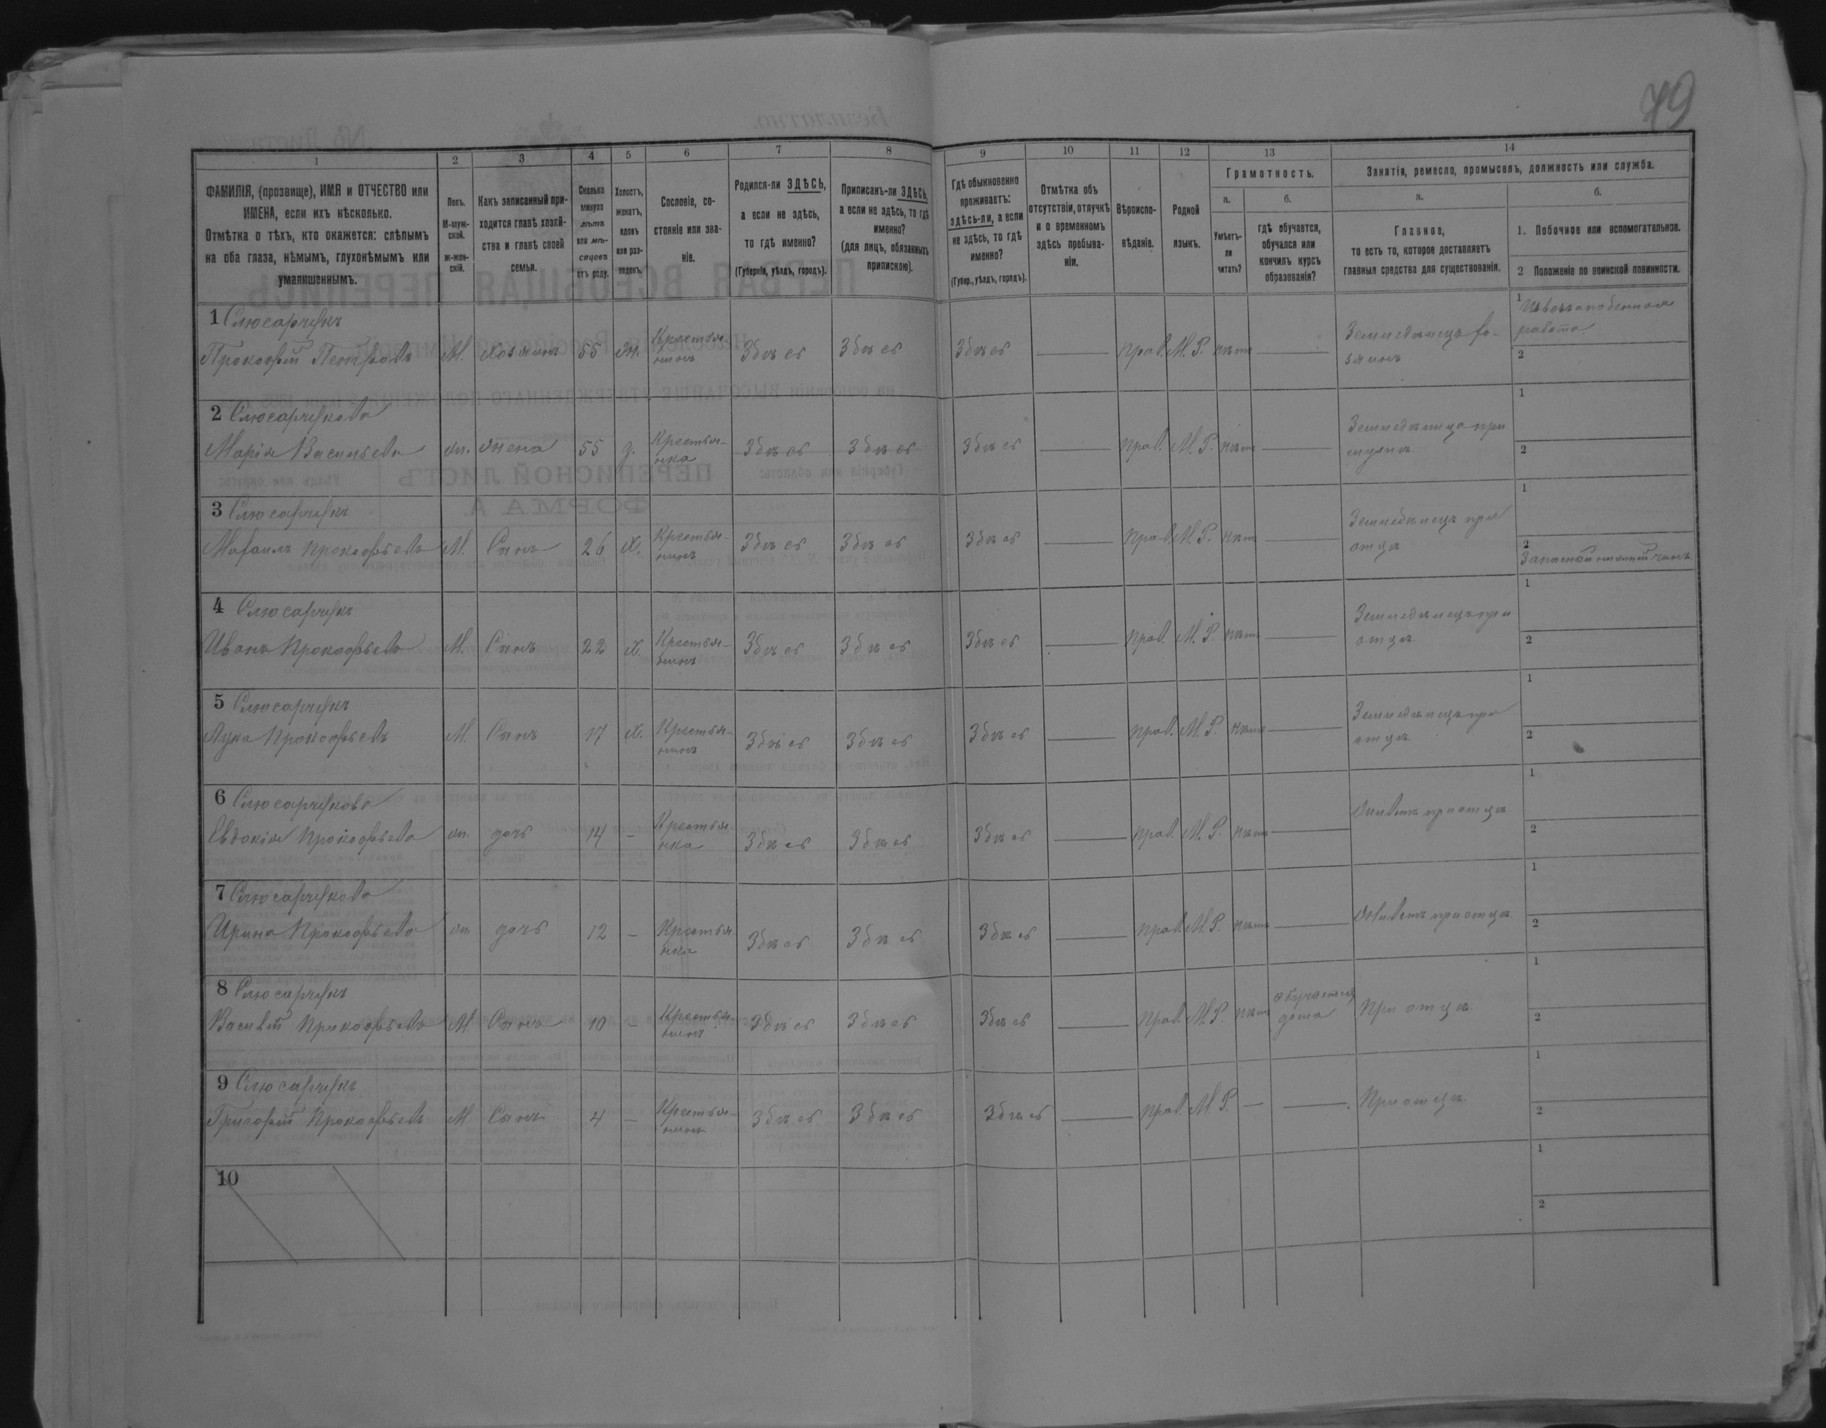 79
1 2 3 4 5 6 7 8 9 10 11 12 13 14
ФАМИЛІЯ, (прозвище), ИМЯ и ОТЧЕСТВО или
ИМЕНА, если ихъ нѣсколько.
Отмѣтка о тѣхъ, кто окажется: слѣпымъ
на оба глаза, нѣмымъ, глухонѣмымъ или
умалишеннымъ.
Полъ.
М-муж-
ской.
ж-жен-
скій.
Какъ записанный при-
ходится главѣ хозяй-
ства и главѣ своей
семьи.
Сколько
минуло
лѣтъ
или мѣ-
сяцевъ
отъ роду.
Холостъ,
женатъ,
вдовъ
или раз-
веденъ.
Сословіе, со-
стояніе или зва-
ніе.
Родился-ли ЗДѢСЬ,
а если не здѣсь,
то гдѣ именно?
(Губернія, уѣздъ, городъ).
Приписанъ-ли ЗДѢСЬ,
а если не здѣсь, то гдѣ
именно?
(для лицъ, обязанныхъ
припискою).
Гдѣ обыкновенно
проживаетъ:
здѣсь-ли, а если
не здѣсь, то гдѣ
именно?
(Губер., уѣздъ, городъ).
Отмѣтка объ
отсутствіи, отлучкѣ
и о временномъ
здѣсь пребыва-
ніи.
Вѣроиспо-
вѣданіе.
Родной
языкъ.
Грамотность.
а.
Умѣетъ-
ли
читать?
б.
гдѣ обучается,
обучался или
кончилъ курсъ
образованія?
Занятія, ремесло, промыселъ, должность или служба.
а.
Главное,
то есть то, которое доставляетъ
главныя средства для существованія.
б.
1. Побочное или вспомогательное.
2 Положеніе по воинской повинности.
1 Слюсарчукъ
Прокофій Петровъ М. хозяинъ 55 ж. Крестья-нинъ Здѣсь Здѣсь Здѣсь — прав. М.Р. нѣтъ — Земледѣлецъ хо-зяинъ 1 работа 2
2 Слюсарчукова
Марія Васильева ж. жена 55 з. Крестья-нка Здѣсь Здѣсь Здѣсь — прав. М.Р. нѣтъ — при мужѣ 1 2
3 Слюсарчукъ
Михаилъ Прокофьевъ М. Сынъ 26 х. Крестья-нинъ Здѣсь Здѣсь Здѣсь — прав. М.Р. нѣтъ — Земледѣлецъ при отцѣ 1 2 Запасной нижній чинъ
4 Слюсарчукъ
Иванъ Прокофьевъ М. Сынъ 22 х. Крестья-нинъ Здѣсь Здѣсь Здѣсь — прав. М.Р. нѣтъ — Земледѣлецъ при отцѣ 1 2
5 Слюсарчукъ
Лука Прокофьевъ М. Сынъ 17 х. Крестья-нинъ Здѣсь Здѣсь Здѣсь — прав. М.Р. нѣтъ — Земледѣлецъ при отцѣ 1 2
6 Слюсарчукова
Евдокія Прокофьева ж. дочь 14 — Крестья-нка Здѣсь Здѣсь Здѣсь — прав. М.Р. нѣтъ — Живетъ при отцѣ 1 2
7 Слюсарчукова
Ирина Прокофьева ж. дочь 12 — Крестья-нка Здѣсь Здѣсь Здѣсь — прав. М.Р. нѣтъ — Живетъ при отцѣ 1 2
8 Слюсарчукъ
Василій Прокофьевъ М Сынъ 10 — Крестья-нинъ Здѣсь Здѣсь Здѣсь — прав. М.Р. нѣтъ обучается дома При отцѣ 1 2
9 Слюсарчукъ
Григорій Прокофьевъ М Сынъ 4 — Крестья-нинъ Здѣсь Здѣсь Здѣсь — прав. М.Р. — — При отцѣ 1 2
10 1 2